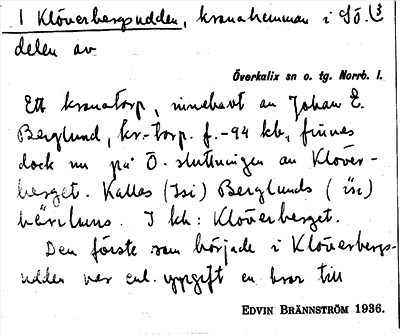 1 Klöverbergsudden, kronohemman i SÖ. (3
delen av
Överkalix sn o. tg. Norrb. l.
Ett kronotorp, innehavt av Johan E.
Berglund, kr.-torp. f.-94 kb, finnes
dock nu på Ö. sluttningen av Klöver-
berget. Kallas (Isi) Berglunds ( isi)
härluns. I kb: Klöverberget.
Den förste som började i Klöverbergs-
udden var enl. uppgift en bror till
EDVIN BRÄNNSTRÖM 1936.